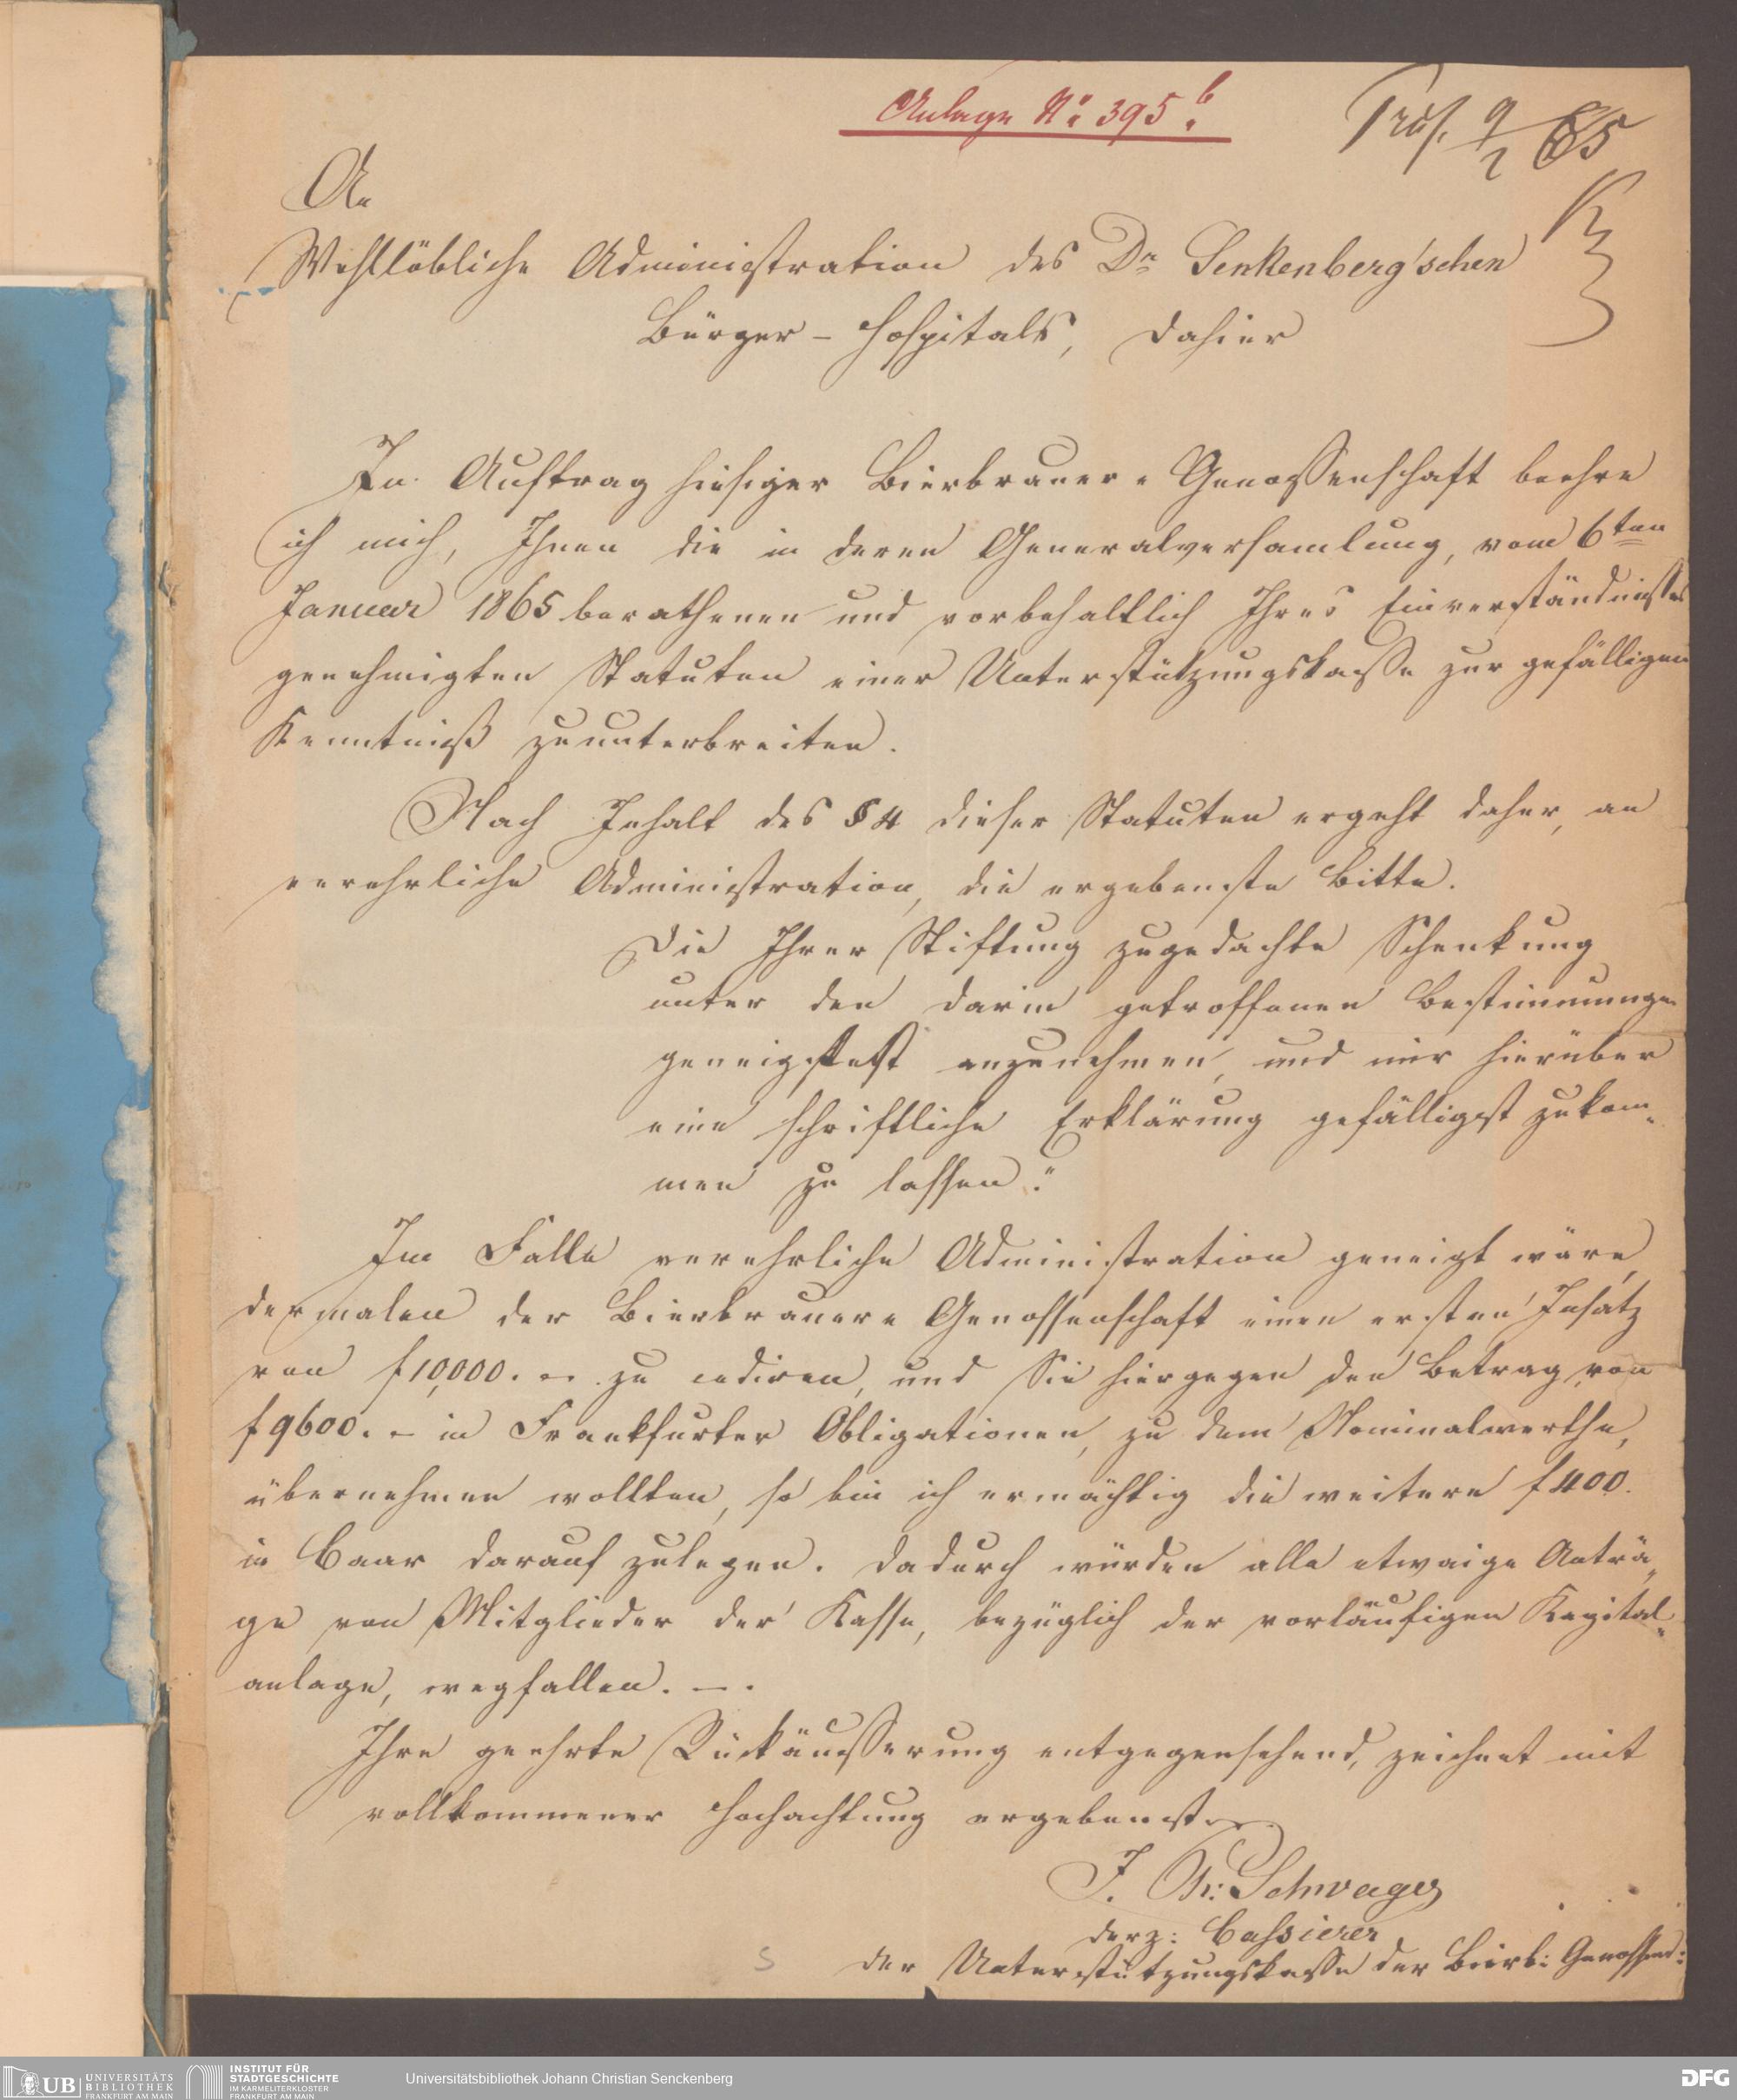 Anlage No 395 b
Präs. 9/2 65
An
Wohllöbliche Administration des Dr Senkenberg'schen
Bürger-Hospitals, dahier
In Auftrag hiesiger Bierbrauer-Genossenschaft beehre
ich mich, Ihnen die in deren Generalversamlung, vom 6ten
Januar 1865 berathenen und vorbehaltlich Ihres Einverständnisses
genehmigten Statuten einer Unterstützungskasse zur gefälligen
Kenntniß zuunterbreiten.
Nach Inhalt des § 4 dieser Statuten ergeht daher, an
verehrliche Administration, die ergebenste Bitte.
Die Ihrer Stiftung zugedachte Schenkung
unter den darin getroffenen Bestimmungen
geneigtest anzunehmen, und mir hierüber
eine schriftliche Erklärung gefälligst zukom-
men zu lassen."
Im Falle verehrliche Administration geneigt wäre,
dermalen der Bierbrauer-Genossenschaft einen ersten Insatz
von f 10,000. – zu cediren, und Sie hiergegen den Betrag von
f 9600. – in Frankfurter Obligationen, zu dem Nominalwerthe,
übernehmen wollten, so bin ich ermächtig die weitere f 400.
in Baar darauf zulegen. Dadurch würden alle etwaige Anträ-
ge von Mitglieder der Kasse, bezüglich der vorläufigen Kapital-
anlage, wegfallen. –.
Ihre geehrte Rückäusserung entgegensehend, zeichnet mit
vollkommener Hochachtung ergebenst
J. Fr: Schwager
derz: Cassierer
der Unterstützungskasse der Bierb: Genossens:
UB UNIVERSITÄTS
BIBLIOTHEK
FRANKFURT AM MAIN
INSTITUT FÜR
STADTGESCHICHTE
IM KARMELITERKLOSTER
FRANKFURT AM MAIN
Universitätsbibliothek Johann Christian Senckenberg
DFG